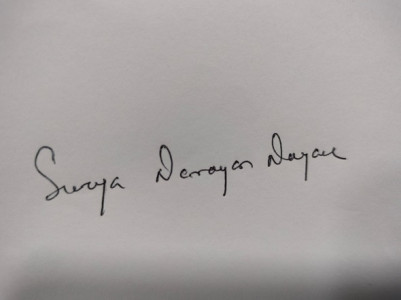 Surya Narayan Nayak